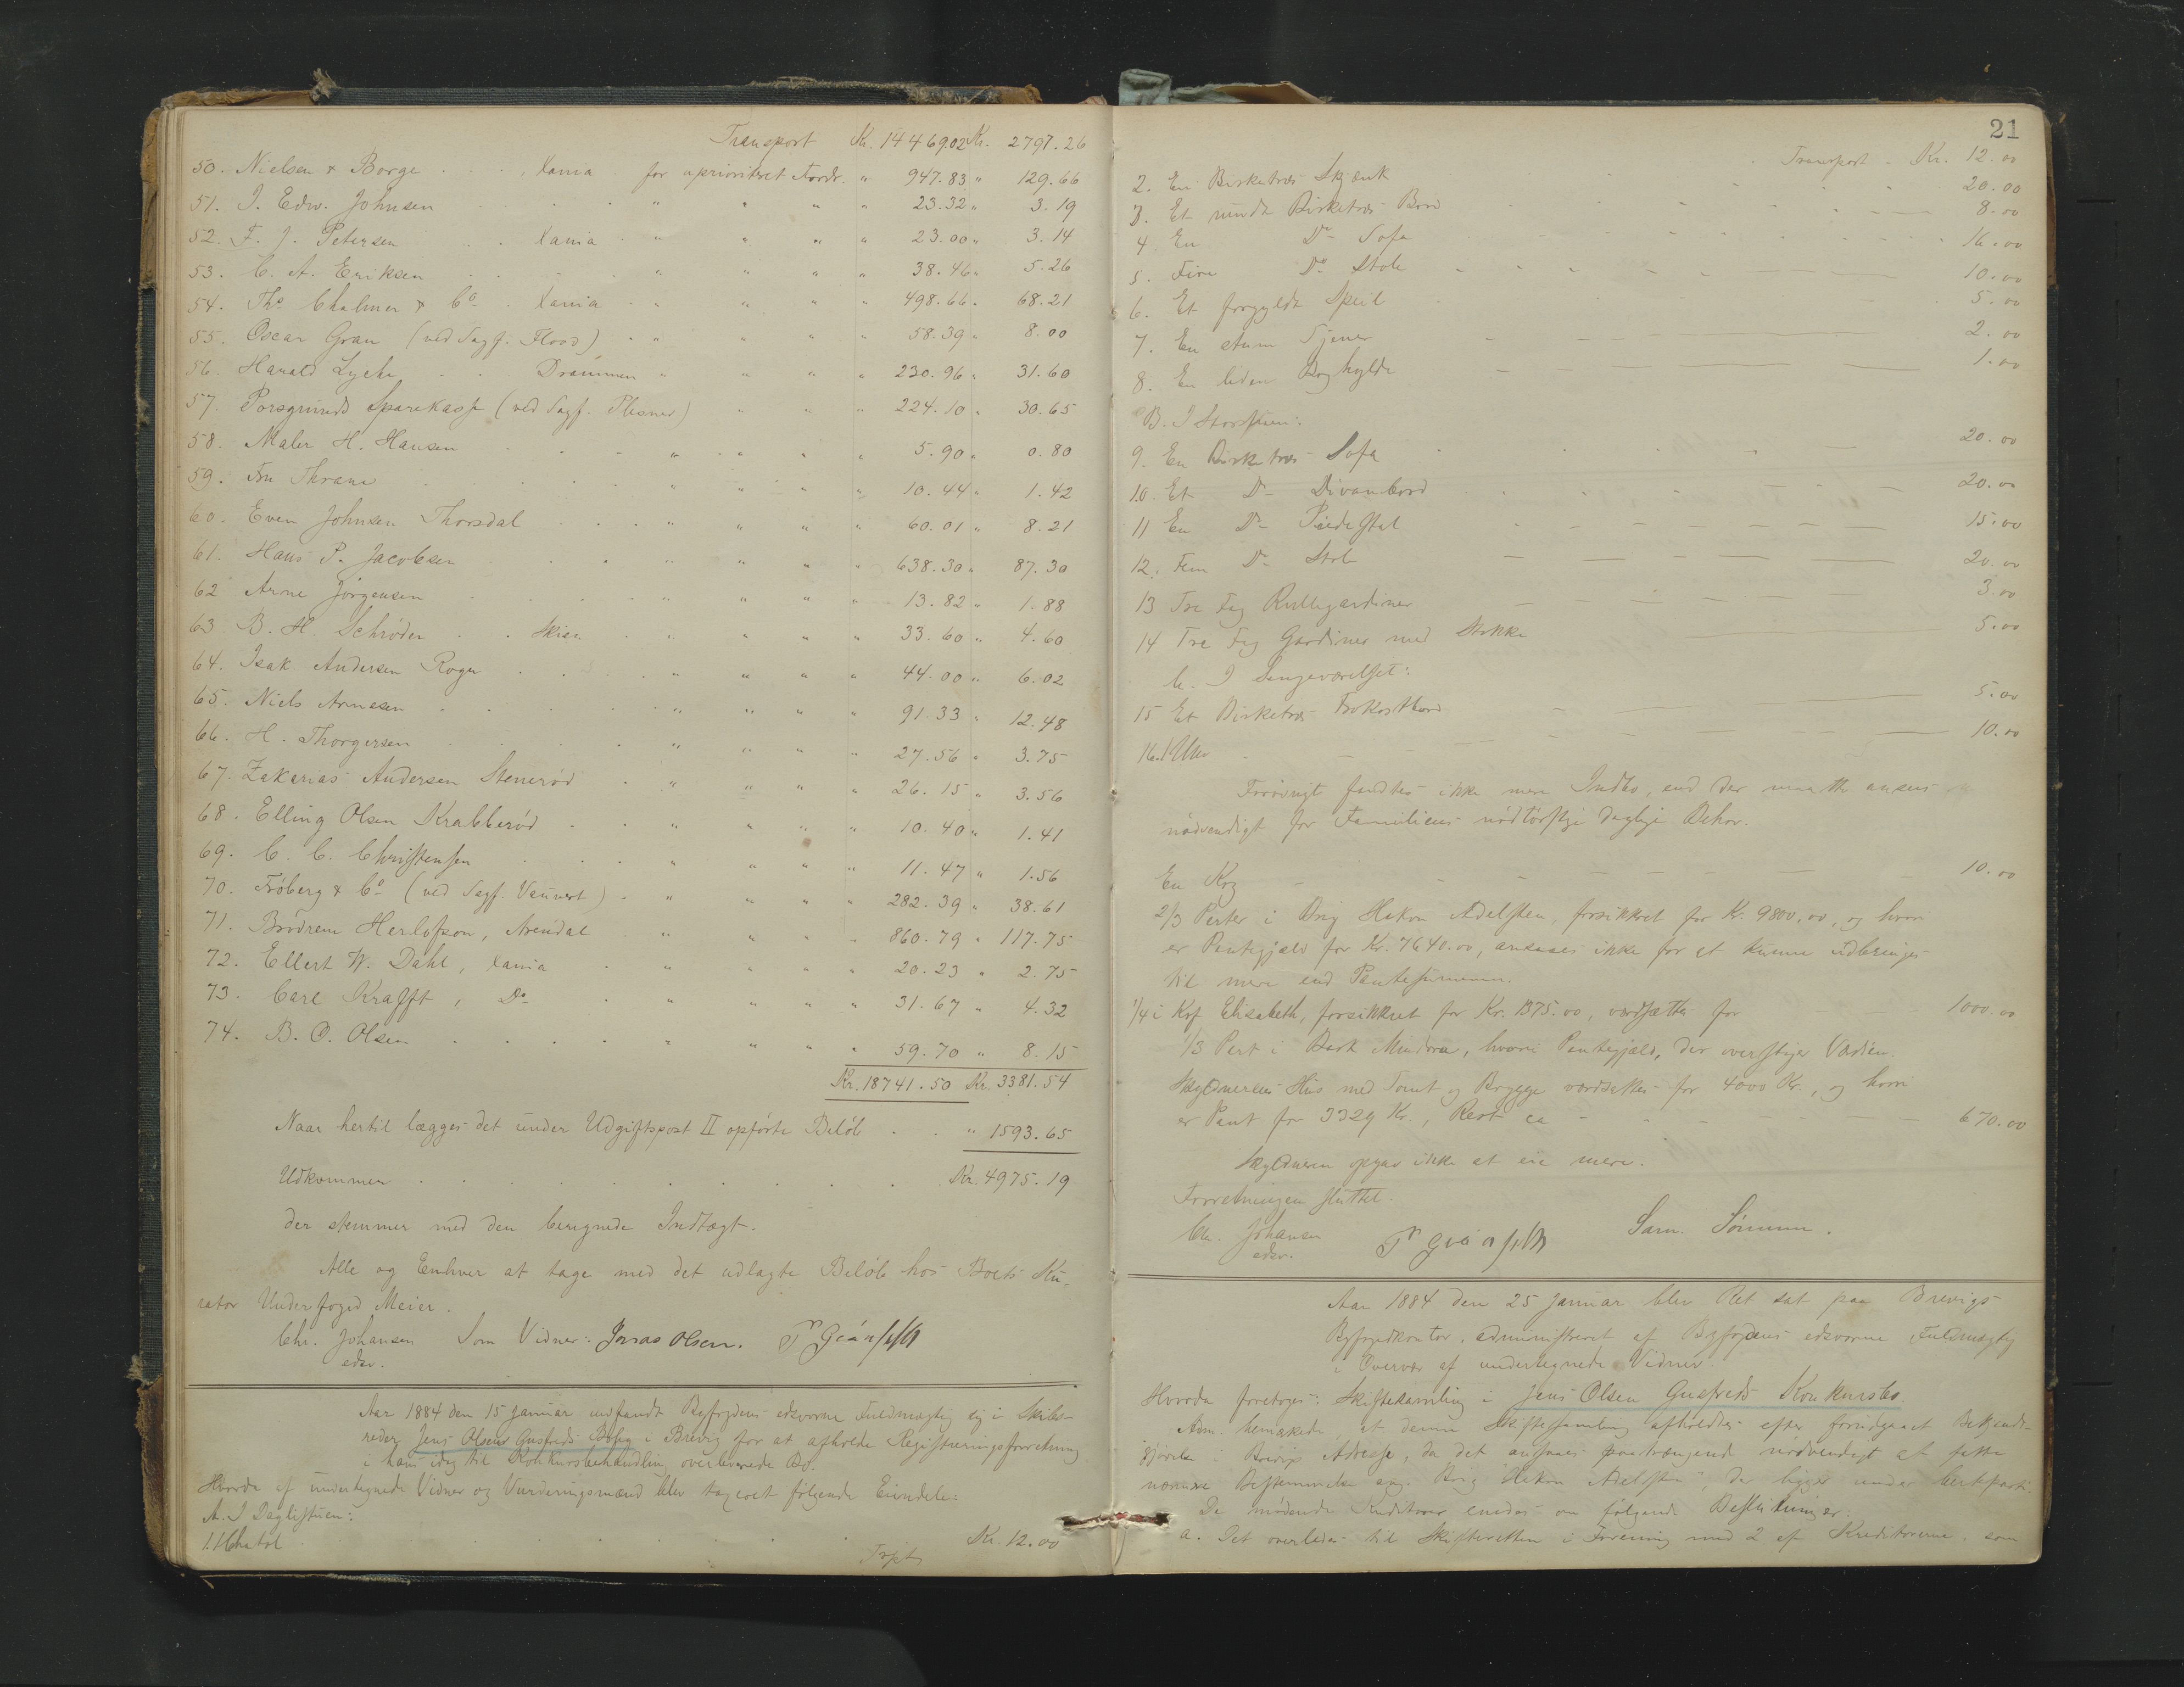 Transport Kr. 14469.02 Kr. 2797.26
50. Nielsen & Borge . . , Xania . for uprioriteret Fordr. " 947.83 " 129.66
51. J. Edw. Johnsen . . . . " " " " 23.32 " 3.19
52. F. J. Petersen . . Xania . " " " " 23.00 " 3.14
53. C. A. Eriksen . . . . " " " " 38.46 " 5.26
54. Ths Chalmer & Co . Xania . " " " " 498.66 " 68.21
55. Oscar Gran (ved Sagf. Flood) . " " " " 58.39 " 8.00
56. Harald Lyche . . Drammen " " " " 230.96 " 31.60
57. Porsgrunds Sparekasse (ved Sagf. Plesner) " " " 224.10 " 30.65
58. Maler H. Hansen . . . " " " " 5.90 " 0.80
59. Fru Thrane . . . . " " " " 10.44 " 1.42
60. Even Johnsen Thorsdal . . . " " " " 60.01 " 8.21
61. Hans P. Jacobsen . . . " " " " 638.30 " 87.30
62 Arne Jörgensen . . . . " " " " 13.82 " 1.88
63 B. H. Schröder . . Skien . " " " " 33.60 " 4.60
64. Isak Andersen Rogn . . . " " " " 44.00 " 6.02
65. Niels Arnesen . . . . " " " " 91.33 " 12.48
66. H. Thorgersen . . . . " " " " 27.56 " 3.75
67. Zakarias Andersen Stenerød . " " " " 26.15 " 3.56
68. Elling Olsen Krabberød . . " " " " 10.40 " 1.41
69. C. C. Christensen . . . " " " " 11.47 " 1.56
70. Fröberg & Co (ved Sagf. Vauvert) . " " " " 282.39 " 38.61
71. Brödrene Herlofson, Arendal . " " " 860.79 " 117.75
72. Ellert W. Dahl, Xania . " " " " 20.23 " 2.75
73. Carl Krafft, Do . " " " " 31.67 " 4.32
74. B. O. Olsen . . . . " " " " 59.70 " 8.15
Kr. 18741.50 Kr. 3381.54
Naar hertil lægges det under Udgiftspost II opførte Beløb . . " 1593.65
Udkommer . . . . . . . . Kr. 4975.19
der stemmer med den beregnede Indtægt.
Alle og Enhver at tage med det udlagte Beløb hos Boets Ku-
rator Underfoged Meier.
Chr. Johansen Som Vidner: Jonas Olsen.
edsv.
Aar 1884 den 15 Januar indfandt Byfogdens edsvorne Fuldmægtig sig i Skibs-
reder Jens Olsens Gusfreds Bolig i Brevig for at afholde Registreringsforretning
i hans idag til Konkursbehandling overleverede Bo.
Hvorda af undertegnede Vidner og Vurderingsmænd blev taxeret følgende Eiendele:
A. I Dagligstuen:
1. 1 Chatol . . . . . . . Kr. 12.00
Trspt
21
Transport . Kr. 12.00
2. En Birketræs Skjænk . . . 20.00
3. Et rundt Birketræs Bord . . . 8.00
4. En Do Sofa . . . 16.00
5. Fire Do Stole . . . 10.00
6. Et forgyldt Speil . . . 5.00
7. En stum Tjener . . . 2.00
8. En liden Boghylde . . . 1.00
B. I Storstuen:
9. En Birketræs Sofa . . . 20.00
10. Et Do Divanbord . . . 20.00
11 En Do Piedestal . . . 15.00
12. Fem Do Stole . . . 20.00
13 Tre Fag Rullegardiner . . . 3.00
14 Tre Fag Gardiner med Stokke 5.00
C. I Sengeværelset:
15 Et Birketræs Frokostbord . . . 5.00
16. 1 Uhr . . . 10.00
Forøvrigt fandtes ikke mere Indbo, end der maatte ansees
nødvendigt for Familiens nødtørftige daglige Behov.
En Kog . . . 10.00
2/3 Parter i Brig Hakon Adelsten, forsikkret for Kr. 9800,00, og hvori
er Pantegjæld for Kr. 7640.00, ansaaes ikke for at kunne udbringes
til mere end Pantesummen.
1/4 i Kof Elisabeth, forsikkret for Kr. 1375.00, værdsættes for 1000.00
1/3 Part i Bark Mindora, hvori Pantegjæld, der overstiger Værdien.
Skyldnerens Hus med Tomt og Brygge værdsættes for 4000 Kr., og hvori
er Pant for 3329 Kr., Rest ca . . . 670.00
Skyldneren opgav ikke at eie mere.
Forretningen sluttet.
Chr. Johansen Sam.
edsv.
Aar 1884 den 25 Januar blev Ret sat paa Brevigs
Byfogedkontor, administreret af Byfogdens edsvorne Fuldmægtig
i Overvær af undertegnede Vidner.
Hvorda foretoges: Skiftesamling i Jens Olsen Gusfreds Konkursbo.
Adm. bemærkede, at denne Skiftesamling afholdtes efter forudgaaet Bekjendt-
gjørelse i Brevigs Adresse, da det ansaaes paatrængende nødvendigt at fatte
nærmere Bestemmelse ang. Brig "Hakon Adelsten", der ligger under Certeparti.
De mødende Kreditorer enedes om følgende Beslutninger:
a. Det overlades til Skifteretten i Forening med 2 af Kreditorerne, som